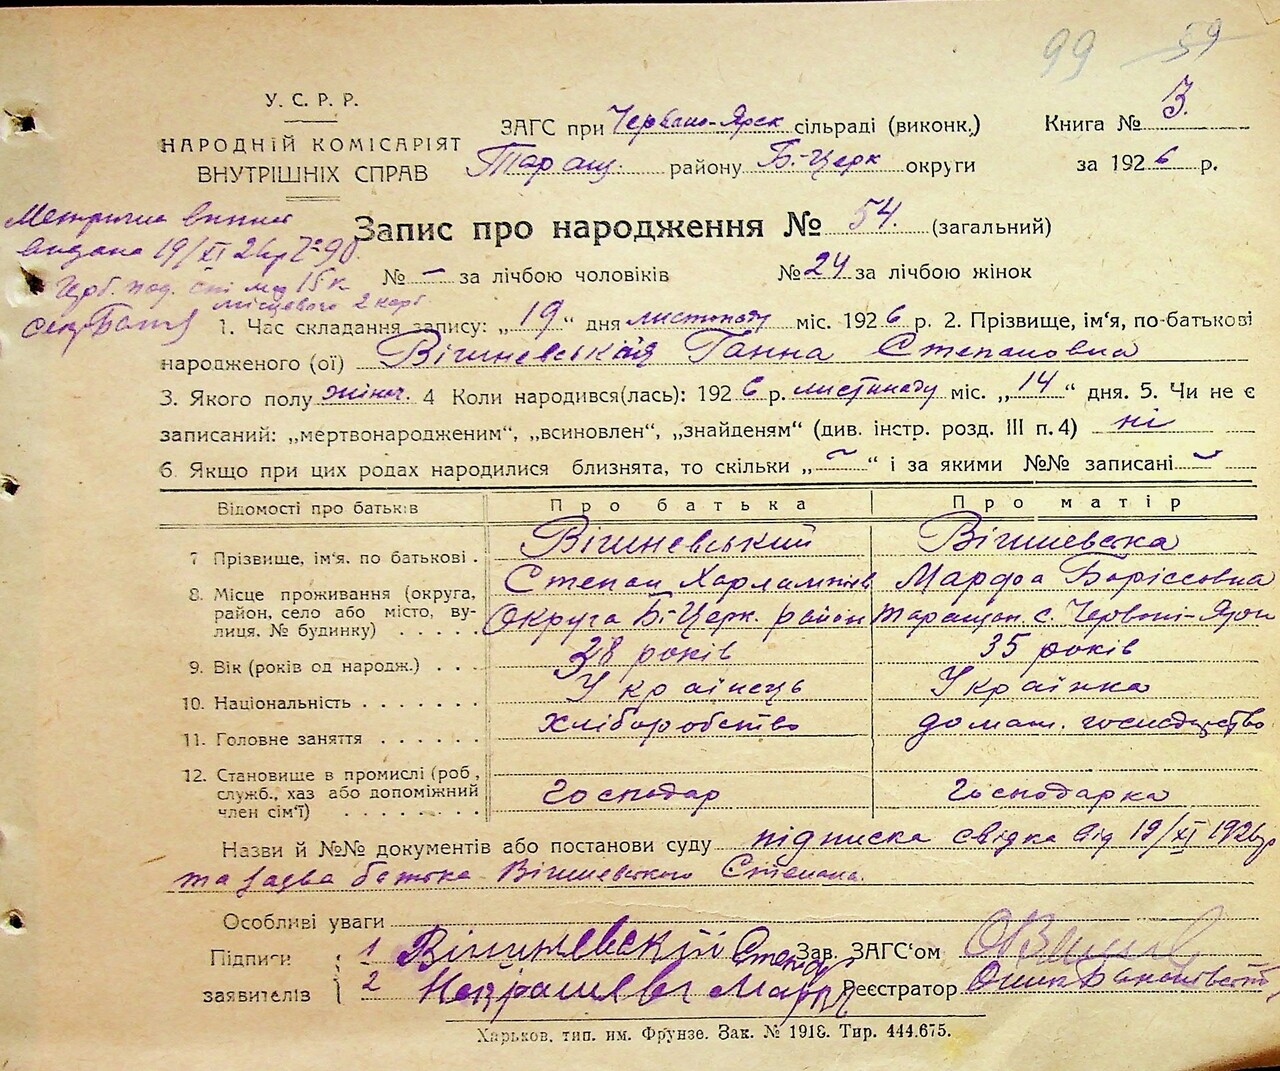 99 59
У. С. Р. Р.
НАРОДНІЙ КОМІСАРІЯТ
ВНУТРІШНІХ СПРАВ
ЗАГС при Червоно-Ярск сільраді (виконк.)
Таращ. району Б-Церк округи
Книга № 3.
за 1926 р.
Запис про народження № 54. (загальний)
№ — за лічбою чоловіків № 24 за лічбою жінок
видана 19/XI 26р № 90
місцевого 2 карб
1. Час складання запису: „19“ дня листопаду міс. 1926 р. 2. Прізвище, ім‘я, по-батькові
народженого (ої) Вішневська Ганна Степановна
3. Якого полу жіноч. 4 Коли народився(лась): 1926 р. листопаду міс. „14“ дня. 5. Чи не є
записаний: „мертвонародженим“, „всиновлен“, „знайденям“ (див. інстр. розд. III п. 4) ні
6. Якщо при цих родах народилися близнята, то скільки „—“ і за якими №№ записані —
Відомості про батьків Про батька Про матір
7 Прізвище, ім‘я. по батькові . Вішневський Вішневська
Степан Харлампіев Марфа Боріссовна
8. Місце проживання (округа,
район, село або місто, ву-
лиця. № будинку) . . . . . Округа Б-Церк. район Таращан. с. Червоні-Яри
9. Вік (років од народж.) . . . 38 років 35 років
10. Національність . . . . . . . Українець Українка
11. Головне заняття . . . . . . хліборобство домаш. господарство
12. Становище в промислі (роб.,
служб., хаз або допоміжний
член сім‘ї) . . . . . . . . Господар Господарка
Назви й №№ документів або постанови суду підписка свідка від 19/XI 1926р
та заява батька Вішневського Степана.
Особливі уваги
Підписи 1 Вішневский Степан Зав. ЗАГС‘ом
заявителів 2 Марфа Реєстратор
Харьков, тип. им. Фрунзе. Зак. № 1918. Тир. 444.675.